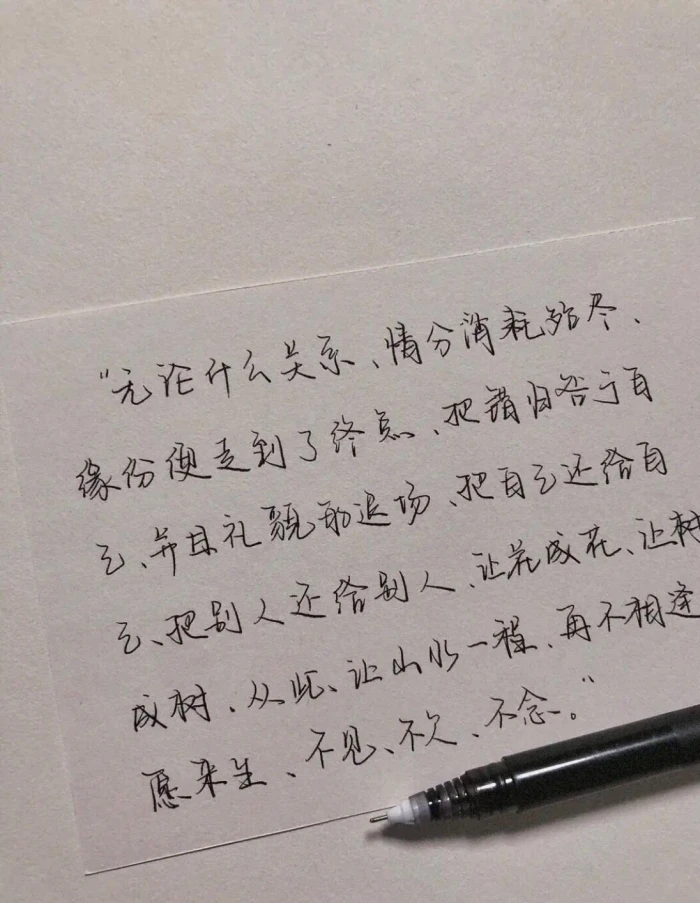 “无论什么关系、情分消耗殆尽、
缘份便走到了终点、把错归咎于自
己、并且礼貌的退场、把自己还给自
己、把别人还给别人、让花成花、让树
成树、从此、让山水一程、再不相逢
愿来生、不见、不欠、不念。”